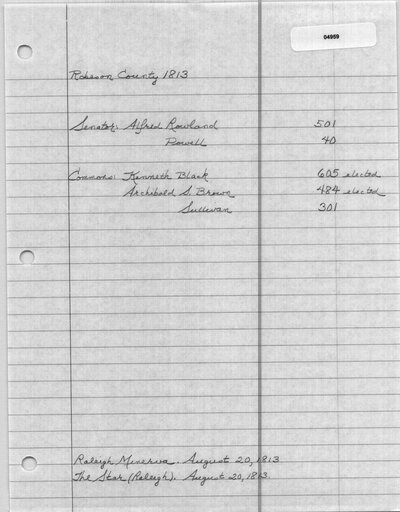 04959
Robeson County 1813
Senator: Alfred Rowland 501
Powell 40
Commons: Kenneth Black 605 elected
Archibald S. Brown 484 elected
Sullivan 301
Raleigh Minerva. August 20, 1813
The Star (Raleigh). August 20, 1813